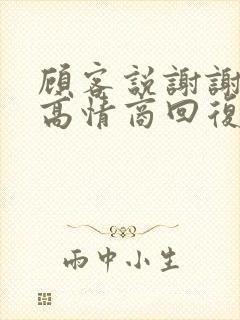 顧客説謝謝
高情商回復
雨中小生